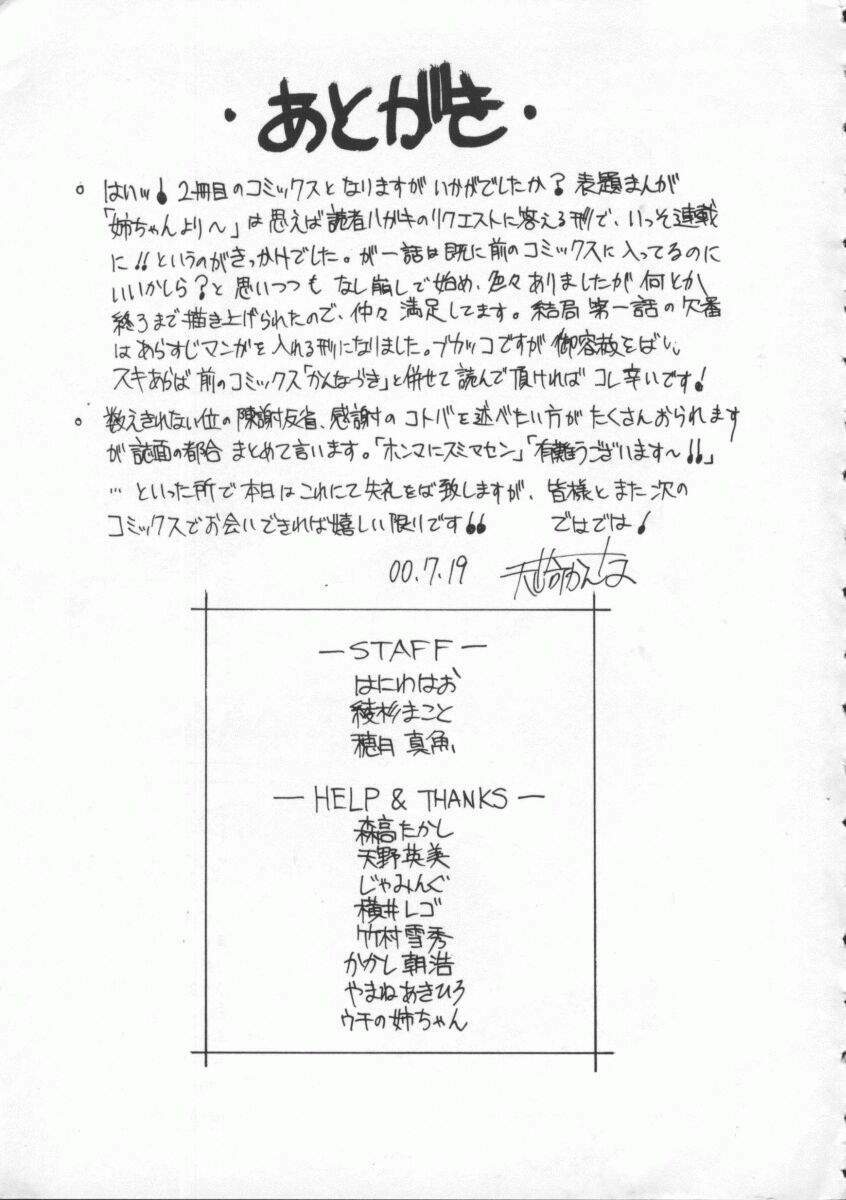 ・あとがき・
。はいッ！2冊目のコミックスとなりますがいかがでしたか？表題まんが
「姉ちゃんより〜」は思えば読者ハガキのリクエストに答える形で、いっそ連載
に!!というのがきっかけでした。が一話は既に前のコミックスに入ってるのに
いいかしら？と思いつつもなし崩しで始め、色々ありましたが何とか
終了まで描き上げられたので、仲々満足してます。結局第一話の欠番
はあらすじマンガを入れる形になりました。ブカッコですが御容赦をばし、
スキあらば前のコミックス「かんなづき」と併せて読んで頂ければコレ幸いです！
。数えきれない位の陳謝反省、感謝のコトバを述べたい方がたくさんおられます
が誌面の都合まとめて言います。「ホンマにスミマセン」「有難うございます〜!!」
…といった所で本日はこれにて失礼をば致しますが、皆様とまた次の
コミックスでお会いできれば嬉しい限りです!! ではでは！
00.7.19
―STAFF―
はにわはお
綾杉まこと
穂月真魚
―HELP & THANKS―
森高たかし
天野英美
じゃみんぐ
横井レゴ
竹村雪秀
かかし朝浩
やまねあきひろ
ウチの姉ちゃん